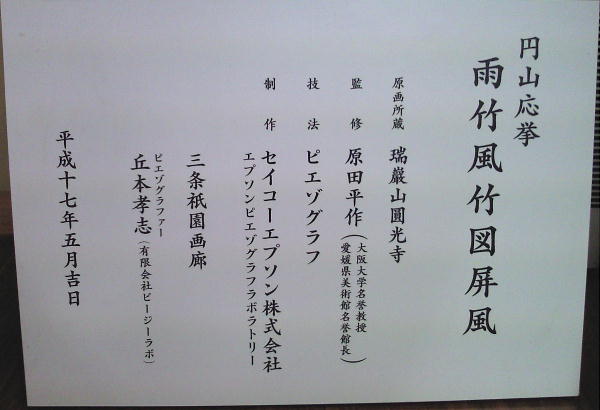 円山応挙
雨竹風竹図屏風
原画所蔵　瑞巌山圓光寺
監修　原田平作（大阪大学名誉教授
愛媛県美術館名誉館長）
技法　ピエゾグラフ
制作　セイコーエプソン株式会社
エプソンピエゾグラフラボラトリー
三条祇園画廊
ピエゾグラファー
丘本孝志（有限会社ピージーラボ）
平成十七年五月吉日